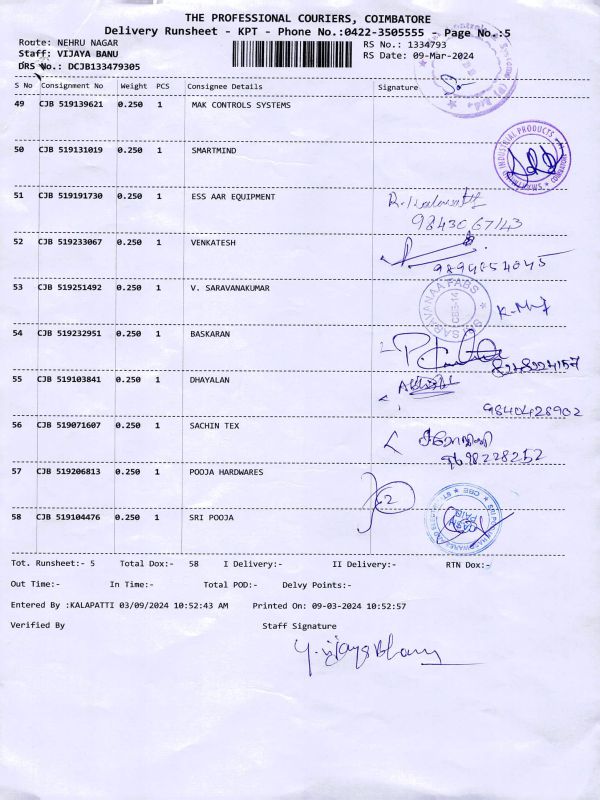 THE PROFESSIONAL COURIERS, COIMBATORE
Delivery Runsheet - KPT - Phone No.:0422-3505555 - Page No.:5
Route: NEHRU NAGAR RS No.: 1334793
Staff: VIJAYA BANU RS Date: 09-Mar-2024
DRS No.: DCJB133479305
S No Consignment No Weight PCS Consignee Details Signature
49 CJB 519139621 0.250 1 MAK CONTROLS SYSTEMS
50 CJB 519131019 0.250 1 SMARTMIND
INDUSTRIAL PRODUCTS
COIMBATORE
51 CJB 519191730 0.250 1 ESS AAR EQUIPMENT
98430 67143
52 CJB 519233067 0.250 1 VENKATESH
9894654045
53 CJB 519251492 0.250 1 V. SARAVANAKUMAR
SRI SARAVANAA FABS
CBE-14
54 CJB 519232951 0.250 1 BASKARAN
55 CJB 519103841 0.250 1 DHAYALAN
9840428902
56 CJB 519071607 0.250 1 SACHIN TEX
57 CJB 519206813 0.250 1 POOJA HARDWARES
58 CJB 519104476 0.250 1 SRI POOJA
Tot. Runsheet:- 5 Total Dox:- 58 I Delivery:- II Delivery:- RTN Dox:-
Out Time:- In Time:- Total POD:- Delvy Points:-
Entered By :KALAPATTI 03/09/2024 10:52:43 AM Printed On: 09-03-2024 10:52:57
Verified By Staff Signature